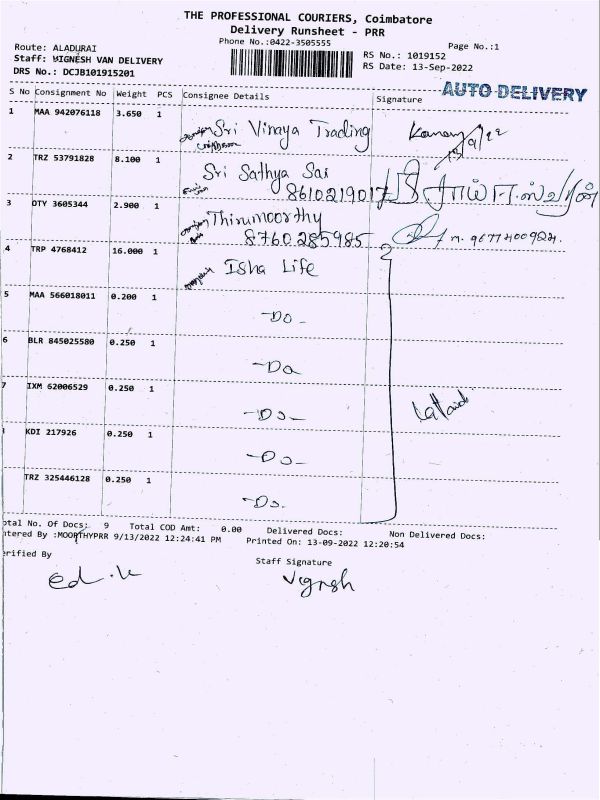 THE PROFESSIONAL COURIERS, Coimbatore
Delivery Runsheet - PRR
Phone No.:0422-3505555
Page No.:1
Route: ALADURAI
Staff: VIGNESH VAN DELIVERY
DRS No.: DCJB101915201
RS No.: 1019152
RS Date: 13-Sep-2022
AUTO DELIVERY
S No Consignment No Weight PCS Consignee Details Signature
1 MAA 942076118 3.650 1 Sri Vinaya Trading
2 TRZ 53791828 8.100 1 Sri Sathya Sai
8610219017
3 OTY 3605344 2.900 1 Thirumoorthy
8760285985
4 TRP 4768412 16.000 1 Isha Life
5 MAA 566018011 0.200 1 -Do-
6 BLR 845025580 0.250 1 -Do
7 IXM 62006529 0.250 1 -Do-
KDI 217926 0.250 1 -Do-
TRZ 325446128 0.250 1 -Do.
otal No. Of Docs: 9 Total COD Amt: 0.00 Delivered Docs: Non Delivered Docs:
ntered By :MOORTHYPRR 9/13/2022 12:24:41 PM Printed On: 13-09-2022 12:20:54
erified By
Staff Signature
Vignesh